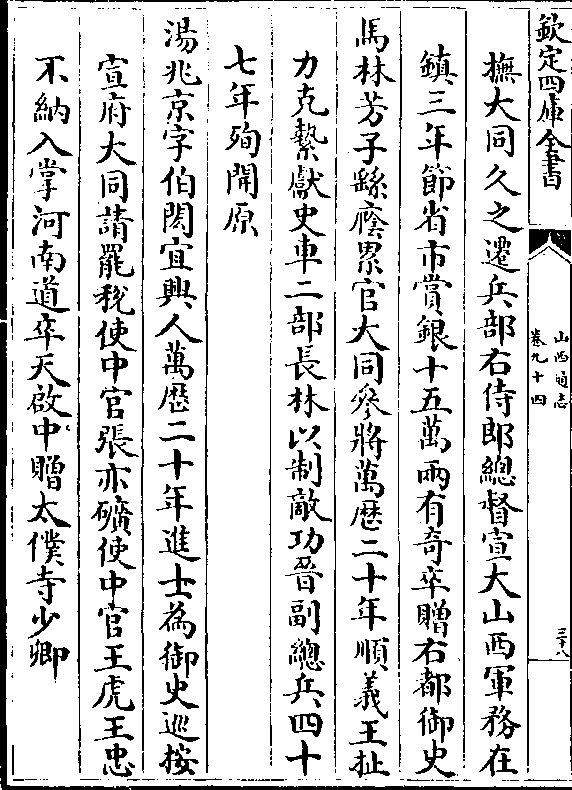 欽定四庫全書
山西通志
卷九十四
三十八
撫大同久之遷兵部右侍郎總督宣大山西軍務在
鎮三年節省市賞銀十五萬兩有奇卒贈右都御史
馬林芳子繇廕累官大同參將萬厯二十年順義王扯
力克縶獻史車二部長林以制敵功晉副總兵四十
七年殉開原
湯兆京字伯閎宜興人萬厯二十年進士為御史巡按
宣府大同請罷稅使中官張亦礦使中官王虎王忠
不納入掌河南道卒天啟中贈太僕寺少卿